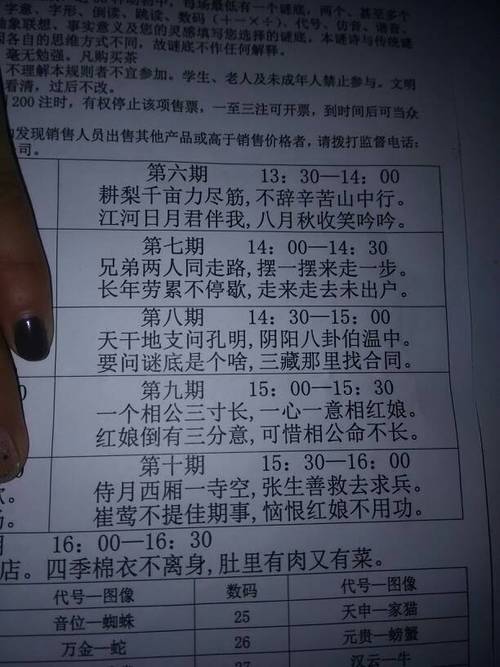 种动物，每场最低有一个谜底，两个、甚至多个
字意、字形、倒读、跳读、数码（＋－×÷）、代号、仿音、谐音、
抽象联想、事实意义及您的灵感填写您选择的谜底，本谜诗与传统谜
因各自的思维方式不同，故谜底不作任何解释。
毫无勉强。凡购买茶
不理解本规则者不宜参加。学生、老人及未成年人禁止参与。文明
看清，过后不改。
200注时，有权停止该项售票，一至三注可开票，到时间后可当众
发现销售人员出售其他产品或高于销售价格者，请拨打监督电话：
司。
第六期 13：30—14：00
耕梨千亩力尽筋，不辞辛苦山中行。
江河日月君伴我，八月秋收笑吟吟。
第七期 14：00—14：30
兄弟两人同走路，摆一摆来走一步。
长年劳累不停歇，走来走去未出户。
第八期 14：30—15：00
天干地支问孔明，阴阳八卦伯温中。
要问谜底是个啥，三藏那里找合同。
第九期 15：00—15：30
一个相公三寸长，一心一意相红娘。
红娘倒有三分意，可惜相公命不长。
第十期 15：30—16：00
侍月西厢一寺空，张生善救去求兵。
崔莺不提佳期事，恼恨红娘不用功。
期 16：00—16：30
店。四季棉衣不离身，肚里有肉又有菜。
代号—图像 数码 代号—图像
音位—蜘蛛 25 天申—家猫
万金—蛇 26 元贵—螃蟹
27 汉云—牛